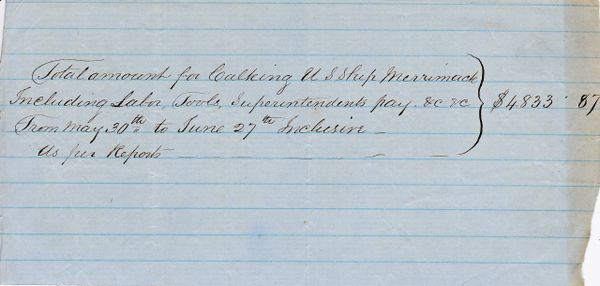 Total amount for Calking U S Ship Merrimack
Including Labor, Tools, Superintendents pay. &c &c } $4833 87
From May 30th to June 27th Inclusive _
As per Reports _ _ _ _ _ _ _